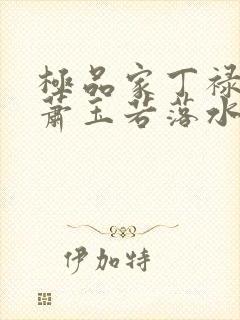 極品家丁禄
蕭玉若落水
伊加特